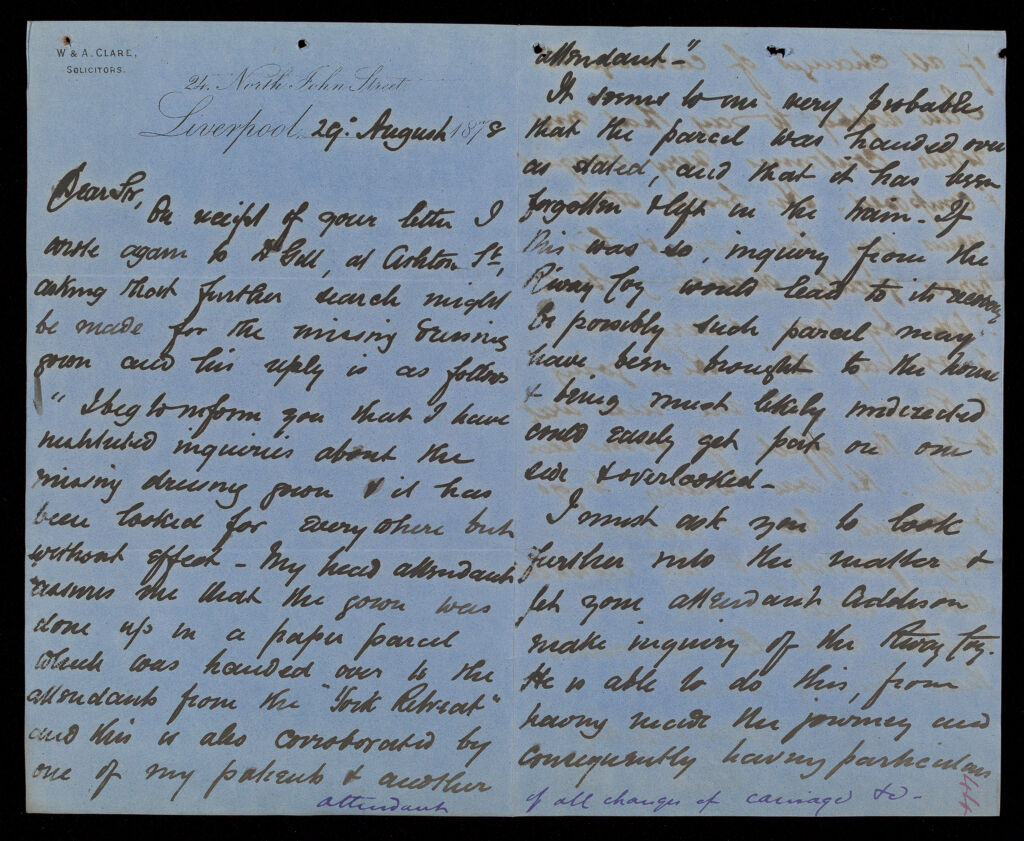 W & A. CLARE,
SOLICITORS.
24. North John Street
Liverpool, 29th August 1878
Dear Sir,
On receipt of your letter I
wrote again to Dr Gill, at Ashton St,
asking that further search might
be made for the missing dressing
gown and his reply is as follows
"I beg to inform you that I have
instituted inquiries about the
missing dressing gown & it has
been looked for everywhere but
without effect - My head attendant
assures me that the gown was
done up in a paper parcel
which was handed over to the
attendants from the "York Retreat"
and this is also corroborated by
one of my patients & another
attendant
attendant"-
It seems to me very probable
that the parcel was handed over
as stated, and that it has been
forgotten & left in the train - If
this was so, inquiry from the
Rway Coy would lead to its recovery
Or possibly such parcel may
have been brought to the house
& being most likely misdirected
could easily get put on one
side & overlooked -
I must ask you to look
further into the matter &
let your attendant Addison
make inquiry of the Rway Coy.
He is able to do this, from
having made the journey and
consequently having particulars
of all changes of carriage &c -
44